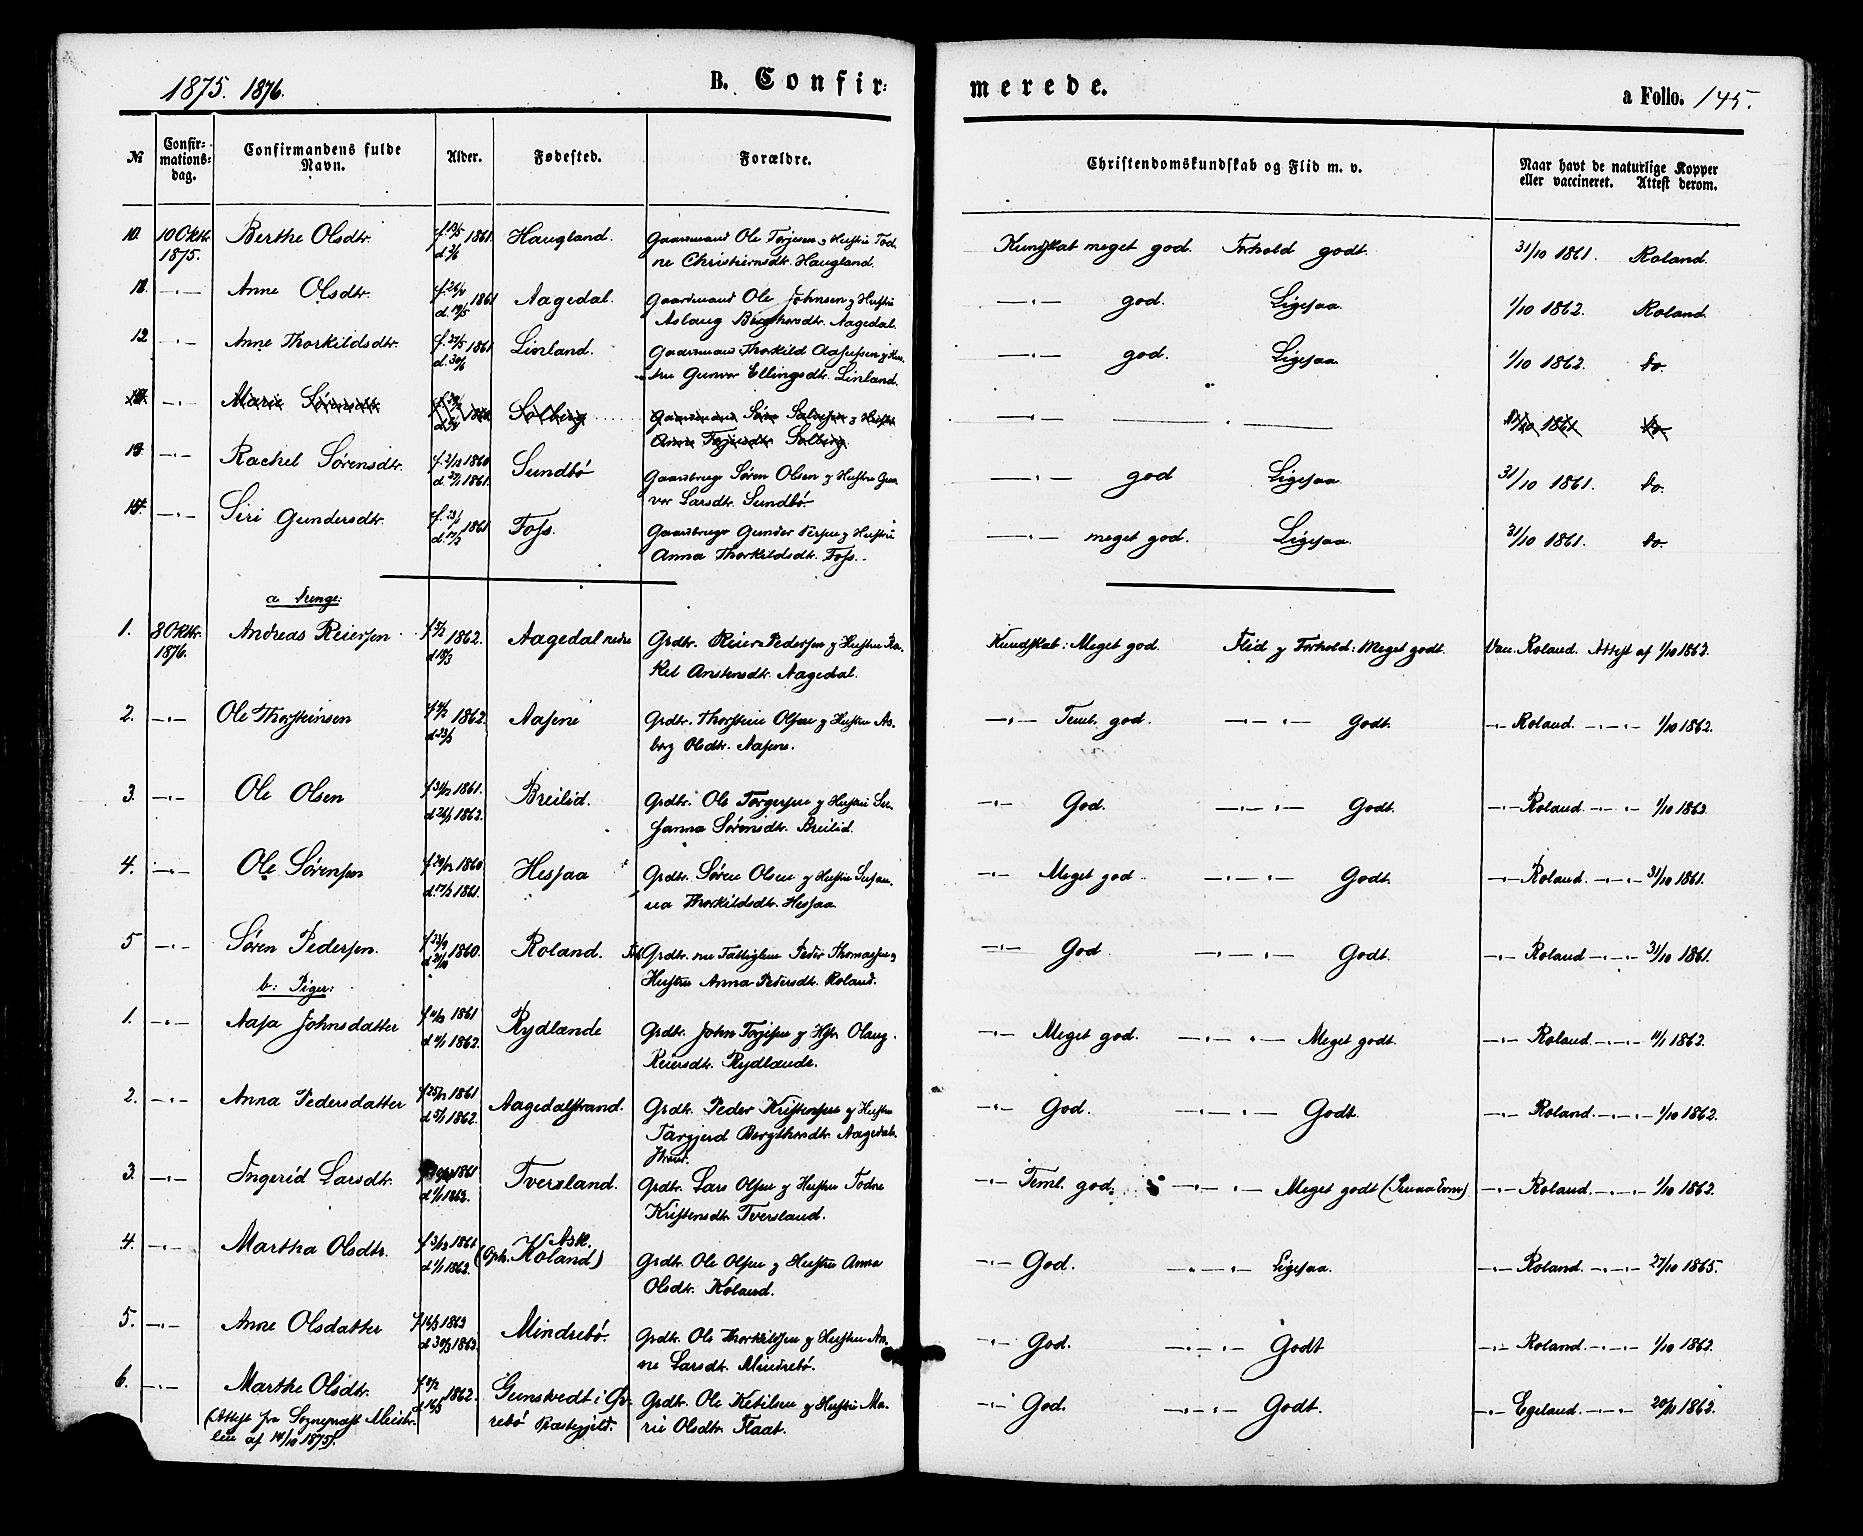 1875. 1876. B. Confirmerede. a Folio. 145.
№ Confirmationsdag. Confirmandens fulde Navn. Alder. Fødested. Forældre. Christendomskundskab og Flid m. v. Naar havt de naturlige Kopper eller vaccineret. Attest derom.
10. 10 Oktbr. 1875. Berthe Olsdtr. 1861. Haugland. Gaardmand Ole Torjesen og Hustru Todne Christiernsdtr. Haugland. Kundskab meget god. Forhold godt. 31/10 1861. Roland.
11. —"— Anne Olsdtr. 1861 Aagedal. Gaardmand Ole Johnsen og Hustru Aslaug Bergthorsdtr. Aagedal. —"— god. Ligesaa. 1/10 1862. Roland.
12 —"— Anne Thorkildsdtr. 1861 Linland. Gaardmand Thorkild Aasulssen og Hustru Gunvor Ellingsdtr. Linland. —"— god. Ligesaa 1/10 1862. do.
—"— Marie Sørensdtr Solberg Gaardmand Søren Salvesen og Hustru Anne Torjusdtr Solberg. —"— 31/10 1861 do.
13. —"— Rachel Sørensdtr. 1860 1861. Sundbø Gaardbruger Søren Olsen og Hustru Gunvor Larsdtr. Sundbø. —"— god Ligesaa 31/10 1861. do.
14. —"— Siri Gundersdtr. 1861 Foss. Gaardbruger Gunder Persen og Hustru Anna Thorkildsdtr. Foss. —"— meget god. Ligesaa. 31/10 1861. do.
a Drenge:
1. 8 Oktbr. 1876. Andreas Reiersen 1862. Aagedal nedre Grdbr. Reier Pedersen og Hustru Rakel Anstensdtr. Aagedal. Kundskab: Meget god. Flid og Forhold: Meget godt. Vac. Roland. Attest af 1/10 1862.
2. —"— Ole Thorsteinsen 1862. Aasene Grdbr. Thorstein Olsen og Hustru Asborg Olsdtr. Aasene. —"— Teml. god. —"— "— Godt. —"— Roland. —"— 1/10 1862.
3. —"— Ole Olsen f 31/12 1861. 1862. Breilid. Grdbr. Ole Torgersen og Hustru Susanna Sørensdtr. Breilid. —"— God. —"— "— Godt. —"— Roland —"— 1/10 1862
4. —"— Ole Sørensen 1860 1861. Hessaa Grdbr. Søren Olsen og Hustru Susanna Thorkildsdtr. Hessaa. —"— Meget god —"— "— Godt. —"— Roland. —"— 31/10 1861.
5 —"— Søren Pedersen. 1860. Roland. Grdbr. nu Fattiglem Peder Thomassen og Hustru Anna Pedersdtr. Roland. —"— God —"— "— Godt. —"— Roland —"— 31/10 1861.
b: Piger:
1. —"— Aasa Johnsdatter 1861 1862. Rydlande Grdbr. John Torjesen og Hstr. Olaug Reiersdtr. Rydlande. —"— Meget god. —"— "— Meget godt. —"— Roland. —"— 1862.
2. —"— Anna Pedersdatter 1861 1862. Aagedalstrand. Grdbr. Peder Kristensen og Hustru Targjerd Bergthorsdtr. Aagedalstrand. —"— God. —"— "— Godt. —"— Roland. —"— 1/10 1862.
3. —"— Ingerid Larsdtr. 1861 1862. Tversland. Grdbr. Lars Olsen og Hustru Todne Kristensdtr. Tversland. —"— Teml. god. —"— "— Meget godt —"— Roland. —"— 1/10 1862.
4. —"— Martha Olsdtr. 1861 1862. Ask. (Oph. Koland) Grdbr. Ole Olsen og Hustru Anna Olsdtr. Koland. —"— God. —"— "— Ligesaa. —"— Roland. —"— 27/10 1865.
5. —"— Anne Olsdatter 1862 1862. Mindrebø. Grdbr. Ole Thorkildsen og Hustru Anne Larsdtr. Mindrebø. —"— God. —"— "— Godt —"— Roland. —"— 1/10 1862.
6. —"— Marthe Olsdtr. 1862. Grdbr. Ole Ketilsen og Hustru Marie Olsdtr. Flaat. —"— God. —"— "— Godt. —"— Egeland. —"— 1862.
(Attest fra Sogneprest af 14/10 1875).